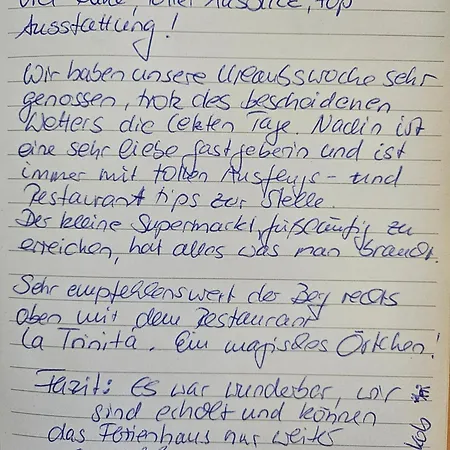 tolle Aussicht, top
Ausstattung!
Wir haben unsere Urlaubswoche sehr
genossen, trotz des bescheidenen
Wetters die letzten Tage. Nadin ist
eine sehr liebe Gastgeberin und ist
immer mit tollen Ausflugs- und
Restaurant tips zur Stelle.
Der kleine Supermarkt, fußläufig zu
erreichen, hat alles was man braucht.
Sehr empfehlenswert der Berg rechts
oben mit dem Restaurant
La Trinita. Ein magisches Örtchen!
Fazit: Es war wunderbar, wir
sind erholt und können
das Ferienhaus nur weiter